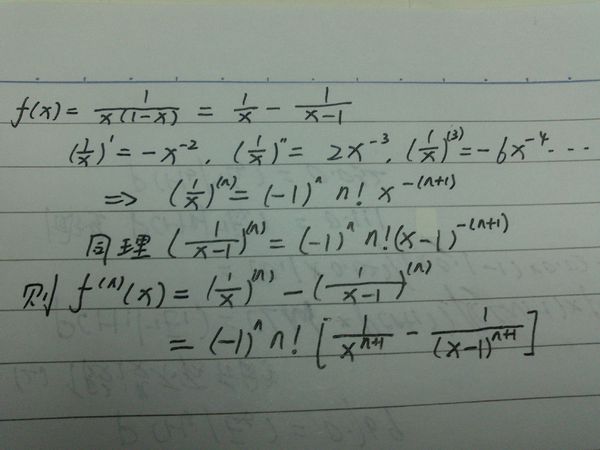 f(x) = \frac{1}{x(1-x)} = \frac{1}{x} - \frac{1}{x-1}
(\frac{1}{x})' = -x^{-2}, (\frac{1}{x})'' = 2x^{-3}, (\frac{1}{x})^{(3)} = -6x^{-4} ...
⇒ (\frac{1}{x})^{(n)} = (-1)^n n! x^{-(n+1)}
同理 (\frac{1}{x-1})^{(n)} = (-1)^n n! (x-1)^{-(n+1)}
则 f^{(n)}(x) = (\frac{1}{x})^{(n)} - (\frac{1}{x-1})^{(n)}
= (-1)^n n! [\frac{1}{x^{n+1}} - \frac{1}{(x-1)^{n+1}}]